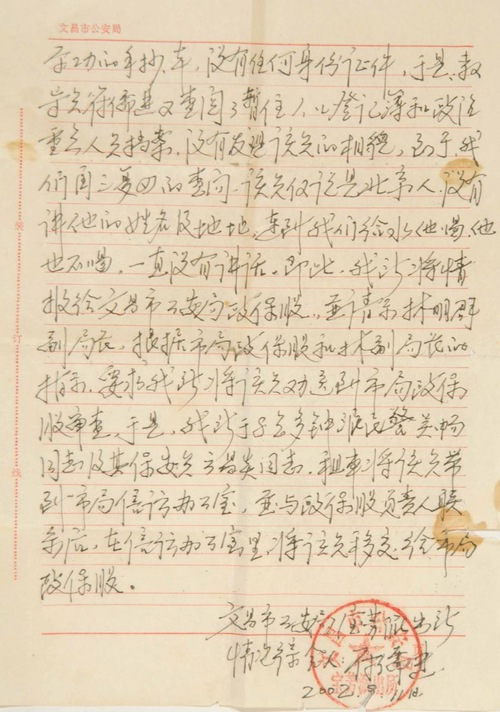 文昌市公安局
法轮功的手抄本，没有任何身份证件，于是，教
导员符儒进又查阅了暂住人口登记簿和政法
重点人员档案，没有发现该员的相貌，至于我
们再三反复的查问，该员仅说是北京人，没有
讲他的姓名及地址，连我们给水他喝，他
也不喝，一直没有讲话。即此，我所将情
报给文昌市公安局政保股，并请示林明群
副局长，根据市局政保股和林副局长的
指示，要求我所将该员送到市局政保
股审查。于是，我所于多钟派民警
同志及其保安员同志，租车将该员带
到市局信访办公室，并与政保股负责人联
系后，在信访办公室里将该员移交给市局
政保股。
文昌市公安局派出所
情况综合人：符
2002.9.11日
装
订
线